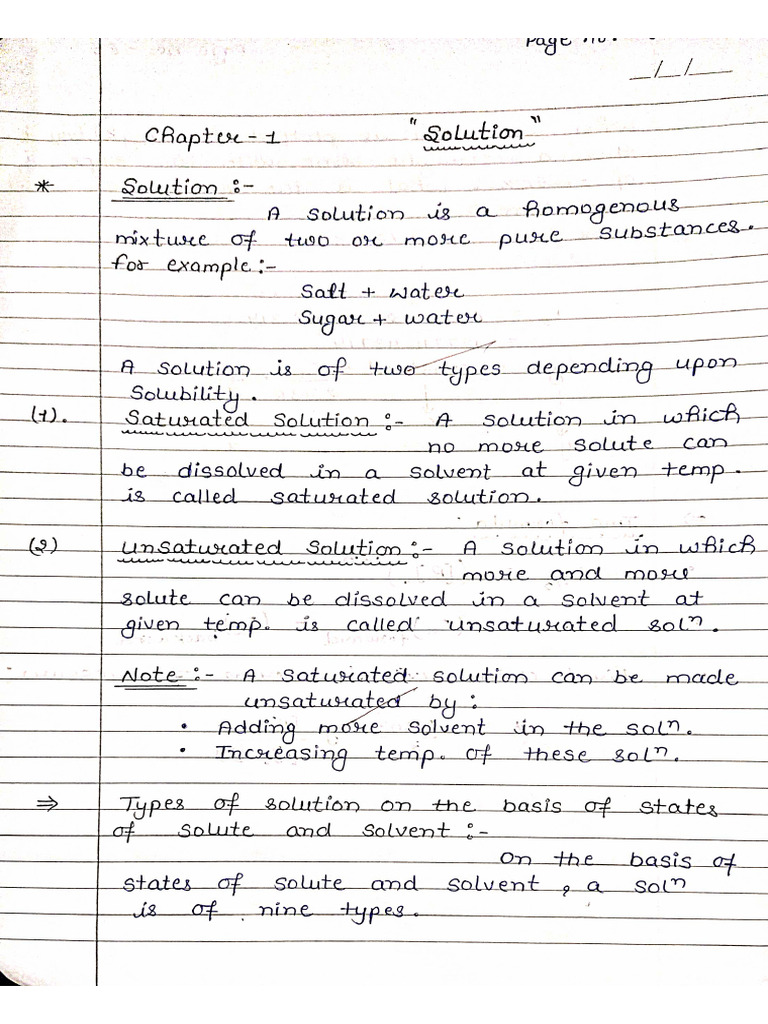 Page No.
_/_/__
Chapter - 1 "Solution"
* Solution :-
A solution is a homogenous
mixture of two or more pure substances.
for example :-
Salt + water
Sugar + water
A solution is of two types depending upon
Solubility.
(1). Saturated Solution :- A solution in which
no more solute can
be dissolved in a solvent at given temp.
is called saturated solution.
(2) Unsaturated Solution :- A solution in which
more and more
solute can be dissolved in a solvent at
given temp. is called unsaturated solⁿ.
Note :- A saturated solution can be made
unsaturated by :
• Adding more solvent in the solⁿ.
• Increasing temp. of these solⁿ.
⇒ Types of solution on the basis of states
of solute and solvent :-
on the basis of
states of solute and solvent, a solⁿ
is of nine types.